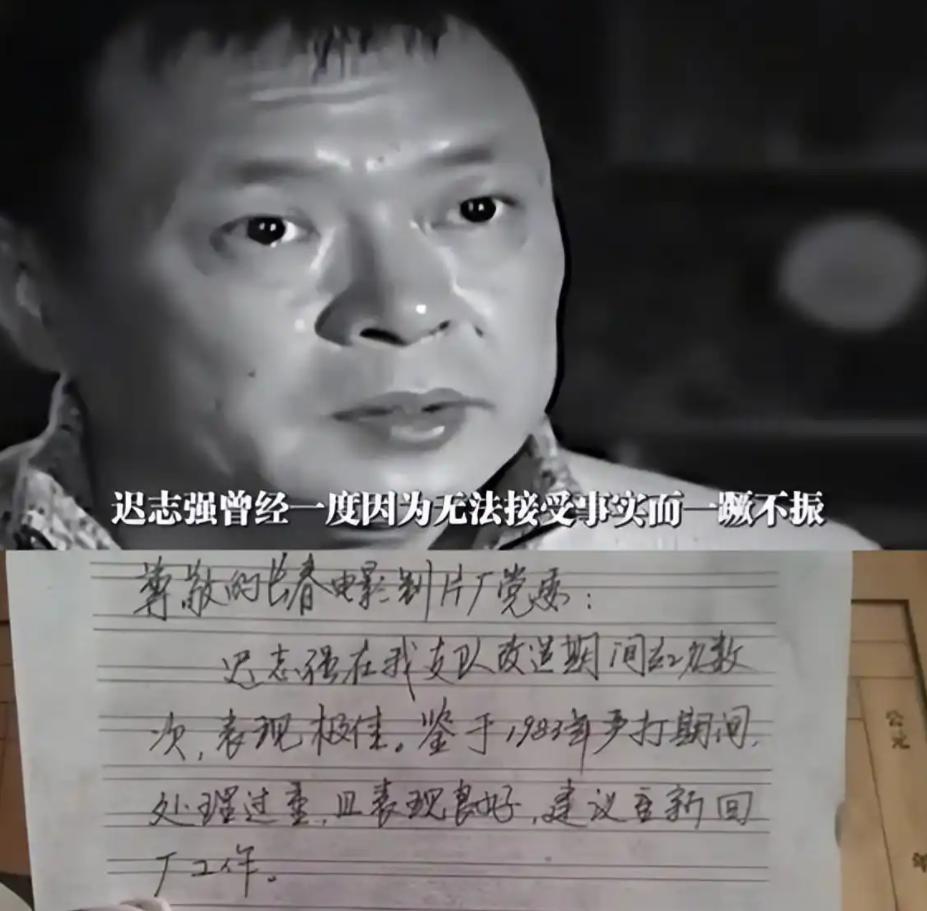 迟志强曾经一度因为无法接受事实而一蹶不振
尊敬的长春电影制片厂党委：
迟志强在我支队改造期间立功数
次，表现极佳。鉴于1983年严打期间，
处理过重，且表现良好，建议重新回
厂工作。
公元
年